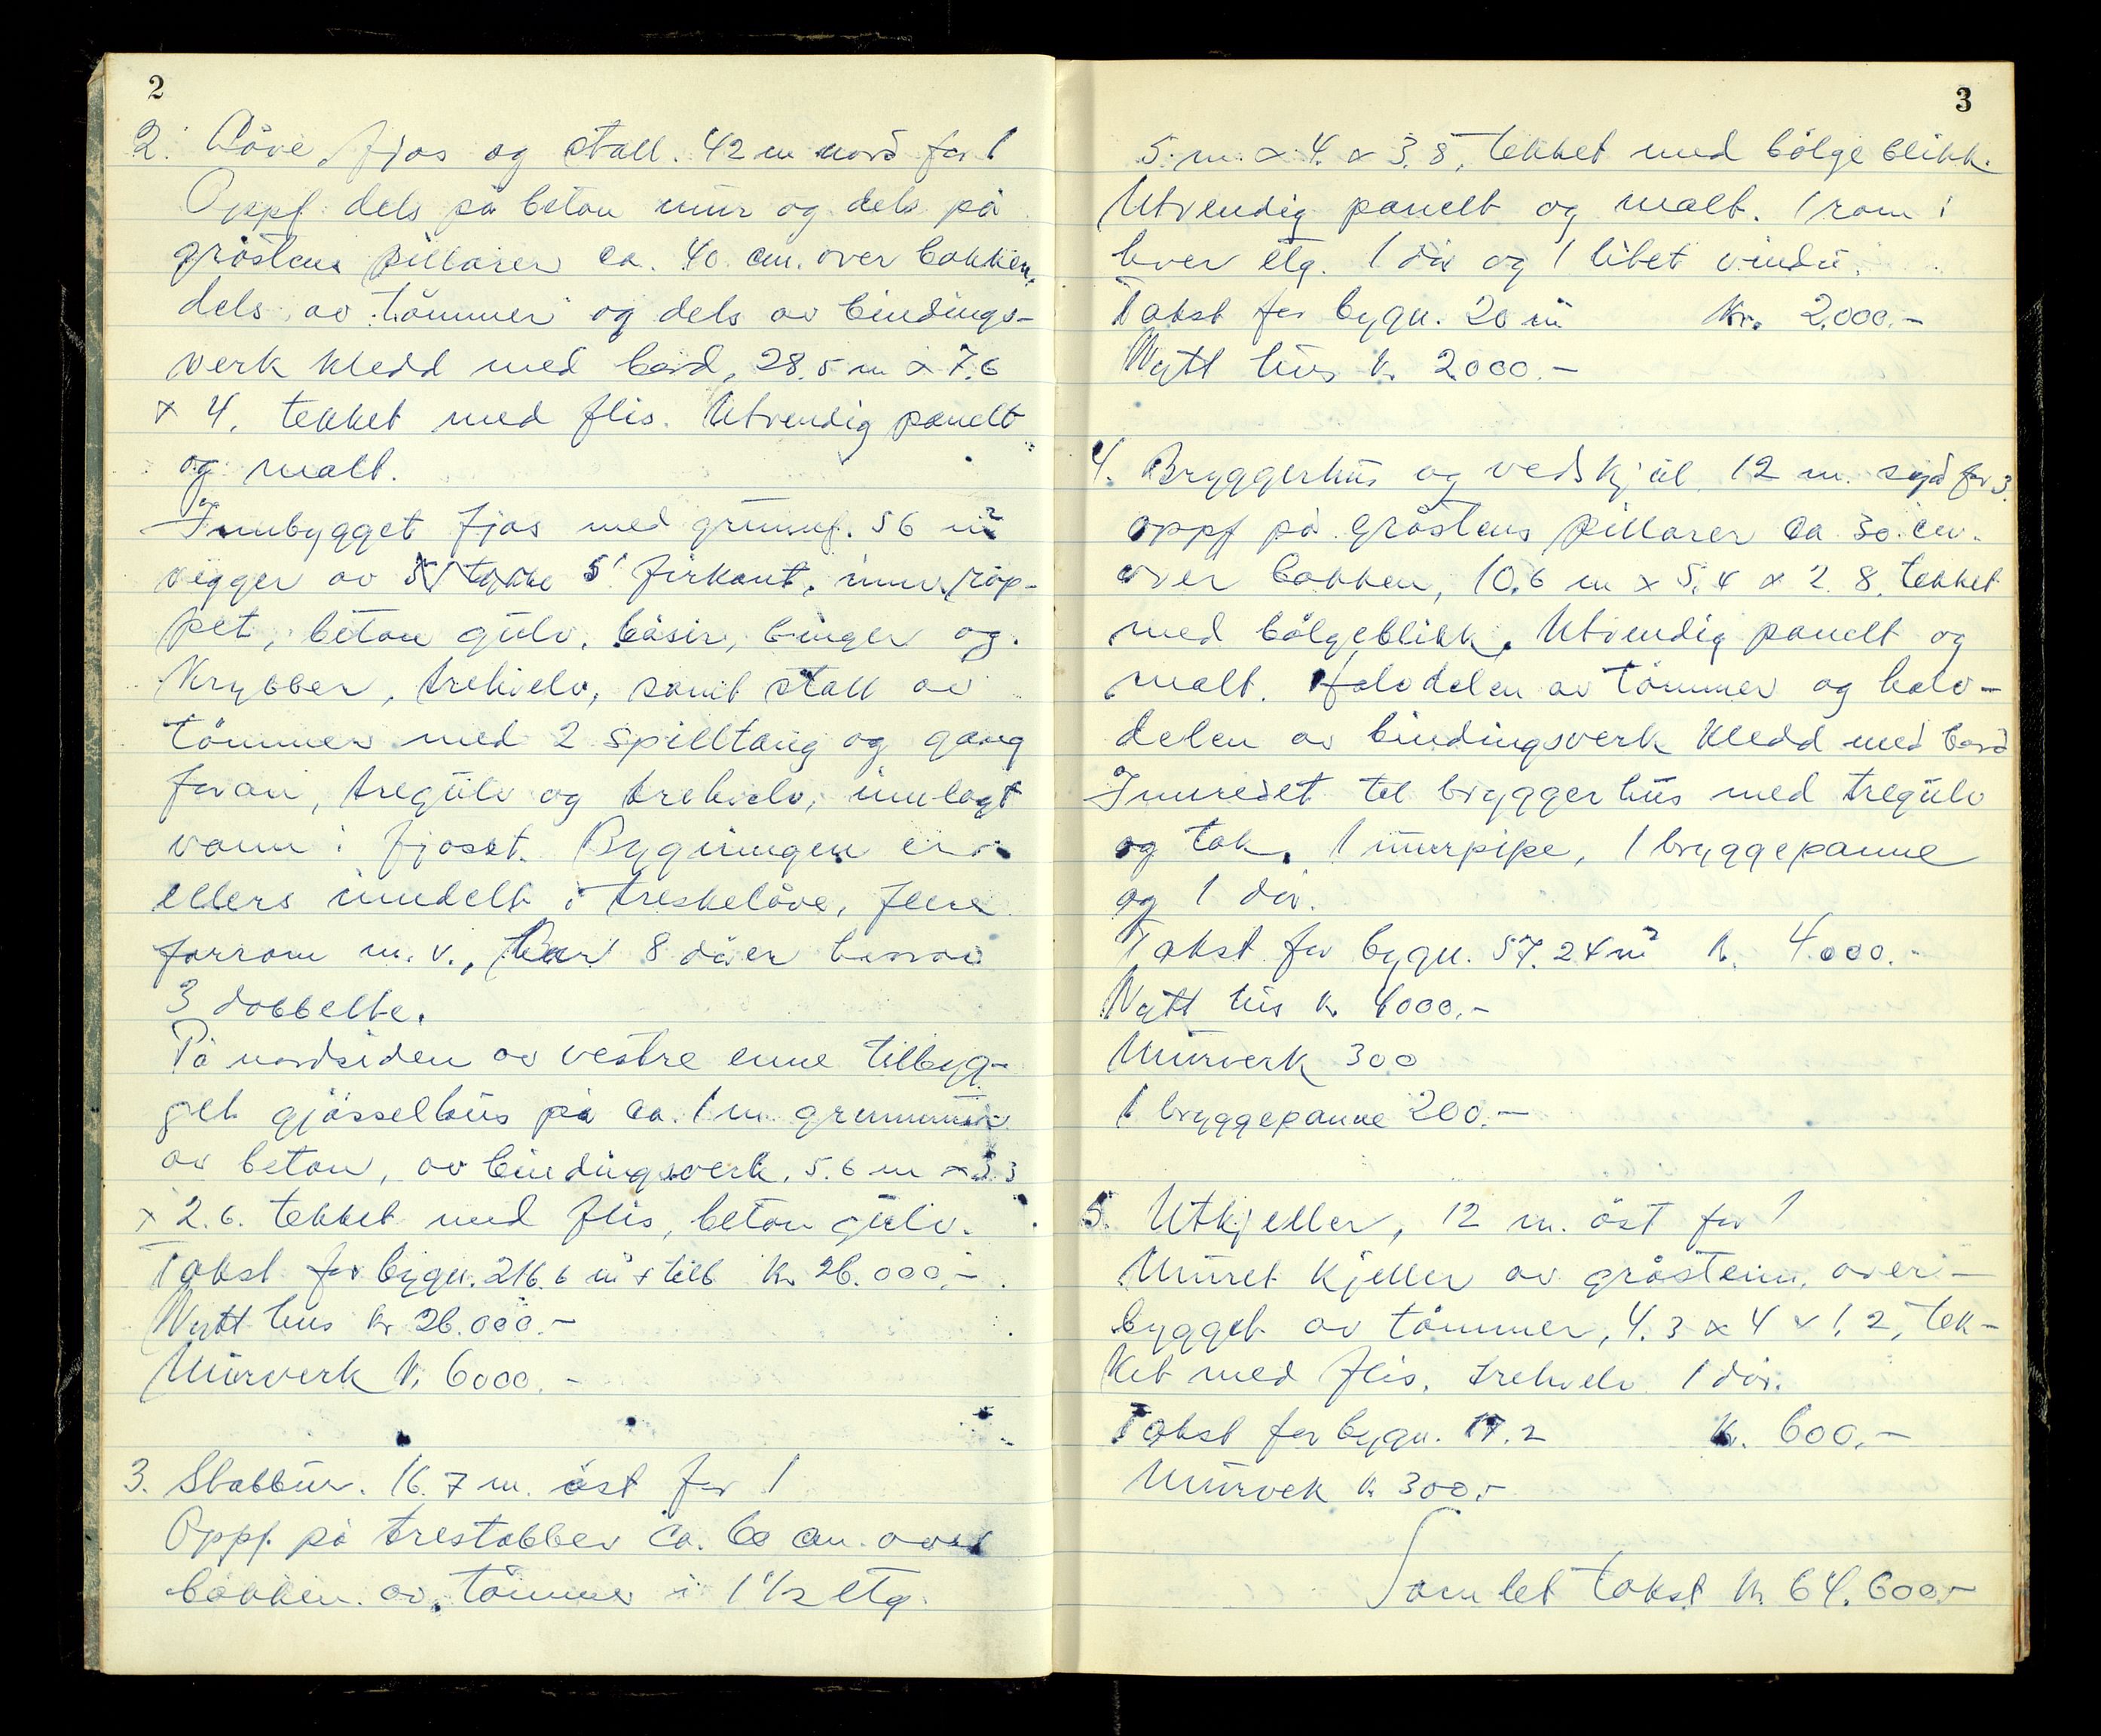 2
2. Låve, fjøs og stall. 42 m nord for 1
Oppf. dels på beton mur og dels på
gråstens pillarer ca. 40 cm. over bakken,
dels av tømmer og dels av bindings-
verk kledd med bord, 28.5 m x 7.6
x 4. tekket med flis. Utvendig panelt
og malt.
Innbygget fjøs med grunnf. 56 m²
vegger av 5" firkant, innv. røp-
pet, beton gulv, båsir, binger og
krybber, trehvelv, samt stall av
tømmer med 2 spilltaug og gang
foran, tregulv og trehvelv, innlagt
vann i fjøset. Bygningen er
ellers inndelt i treskelåve, flere
forrom m. v., har 8 dører hvorav
3 dobbelte.
På nordsiden av vestre enne tilbyg-
get gjødselhus på ca. 1 m. grunnmur
av beton, av bindingsverk. 5.6 m x 3.3
x 2.6. tekket med flis, beton gulv.
Takst for bygn. 216.6 m² + tilb kr. 26.000.-
Nytt hus kr 26.000.-
Murverk kr. 6000.-
3. Stabbur. 16.7 m. øst for 1
Oppf. på trestabber ca. 60 cm. over
bakken av tømmer i 1 1/2 etg.
3
5. m. x 4. x 3.8, tekket med bølgeblikk.
Utvendig panelt og malt. 1 rom i
hver etg. 1 dør og 1 litet vindu.
Takst for bygn. 20 m² kr. 2.000.-
Nytt hus kr. 2000.-
4. Bryggerhus og vedskjul 12 m. syd for 3.
oppf på gråstens pillarer ca 30 cm.
over bakken, 10.6 m x 5.4 x 2.8. tekket
med bølgeblikk. Utvendig panelt og
malt. Halvdelen av tømmer og halv-
delen av bindingsverk kledd med bord
Innredet til bryggerhus med tregulv
og tak. 1 murpipe, 1 bryggepanne
og 1 dør.
Takst for bygn. 57.24 m² kr. 4.000.-
Nytt hus kr. 4000.-
Murverk 300
1 bryggepanne 200.-
5. Utkjeller, 12 m. øst for 1
Muret kjeller av gråstein, over-
bygget av tømmer, 4.3 x 4 x 1.2, tek-
ket med flis, trehvelv 1 dør.
Takst for bygn. 17.2 kr. 600.-
Murvek kr. 300.-
Samlet takst kr. 64.600.-